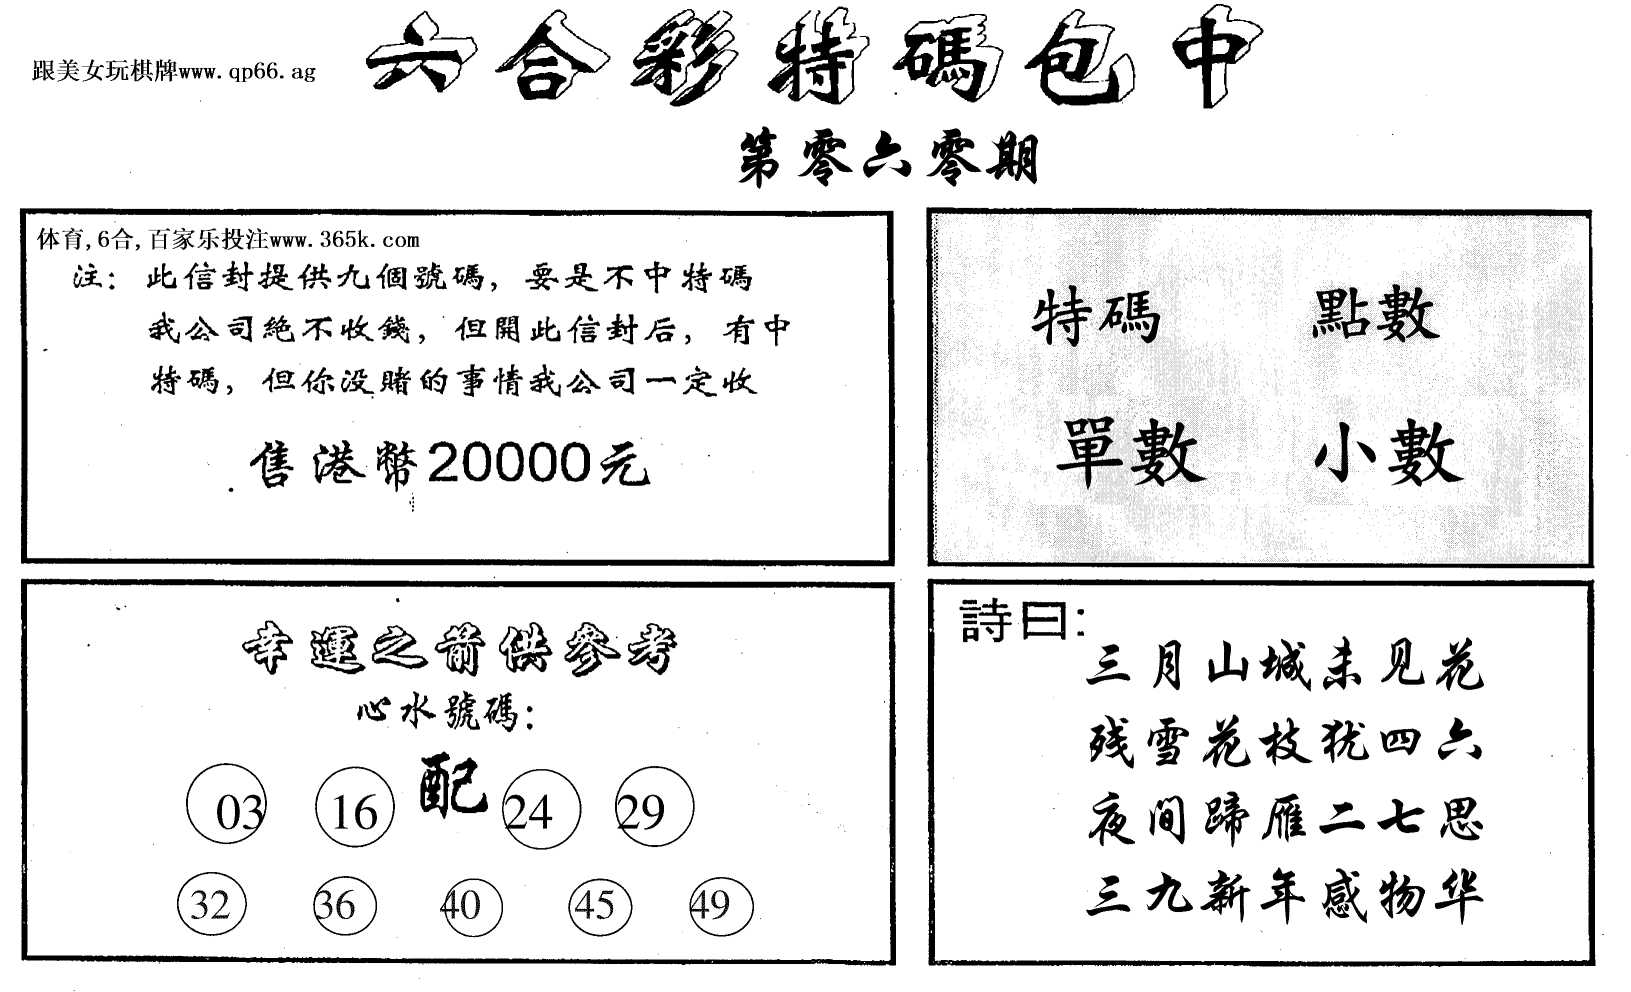 跟美女玩棋牌www.qp66.ag
六合彩特碼包中
第零六零期
体育,6合,百家乐投注www.365k.com
注：此信封提供九個號碼，要是不中特碼
我公司絶不收錢，但開此信封后，有中
特碼，但你没賭的事情我公司一定收
售港幣20000元
特碼 點數
單數 小數
幸運之箭供參考
心水號碼：
03 16 配 24 29
32 36 40 45 49
詩曰：
三月山城未见花
残雪花枝犹四六
夜间蹄雁二七思
三九新年感物华